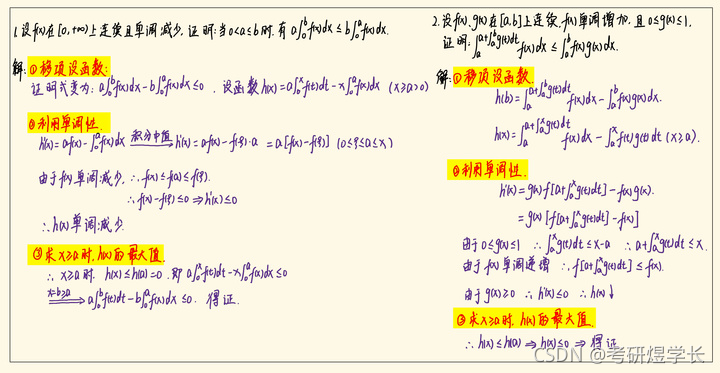 1. 设f(x)在[0,+∞)上连续且单调减少, 证明: 当0<a≤b时, 有 a∫₀ᵇf(x)dx ≤ b∫₀ᵃf(x)dx.
解: ①移项设函数:
证明式变为: a∫₀ᵇf(x)dx-b∫₀ᵃf(x)dx≤0 . 设函数h(x)=a∫₀ˣf(t)dt-x∫₀ᵃf(x)dx (x≥a>0)
②利用单调性.
h'(x)=af(x)-∫₀ᵃf(x)dx 积分中值 h'(x)=af(x)-f(ξ)·a = a[f(x)-f(ξ)] (0≤ξ≤a≤x)
由于f(x)单调减少, ∴f(x)≤f(a)≤f(ξ).
∴f(x)-f(ξ)≤0 ⇒h'(x)≤0
∴h(x)单调减少.
③求x≥a时, h(x)的最大值.
∴ x≥a时. h(x)≤h(a)=0. 即 a∫₀ˣf(t)dt-x∫₀ᵃf(x)dx≤0
x=b≥a ⇒ a∫₀ᵇf(t)dt-b∫₀ᵃf(x)dx≤0. 得证.
2. 设f(x),g(x)在[a,b]上连续, f(x)单调增加, 且0≤g(x)≤1,
证明: ∫ₐ^{a+∫ₐᵇg(t)dt} f(x)dx ≤ ∫ₐᵇf(x)g(x)dx.
解: ①移项设函数.
h(b)=∫ₐ^{a+∫ₐᵇg(t)dt} f(x)dx-∫ₐᵇf(x)g(x)dx.
h(x)=∫ₐ^{a+∫ₐˣg(t)dt} f(x)dx-∫ₐˣf(t)g(t)dt (x≥a).
②利用单调性.
h'(x)=g(x)·f[a+∫ₐˣg(t)dt]-f(x)g(x).
=g(x)[f[a+∫ₐˣg(t)dt]-f(x)]
由于0≤g(x)≤1 ∴∫ₐˣg(t)dt≤x-a ∴a+∫ₐˣg(t)dt≤x.
由于f(x)单调递增 ∴f[a+∫ₐˣg(t)dt]≤f(x).
由于g(x)≥0 ∴h'(x)≤0 ∴h(x)↓
③求x≥a时, h(x)的最大值.
∴h(x)≤h(a) ⇒h(x)≤0 ⇒得证
CSDN @考研煜学长